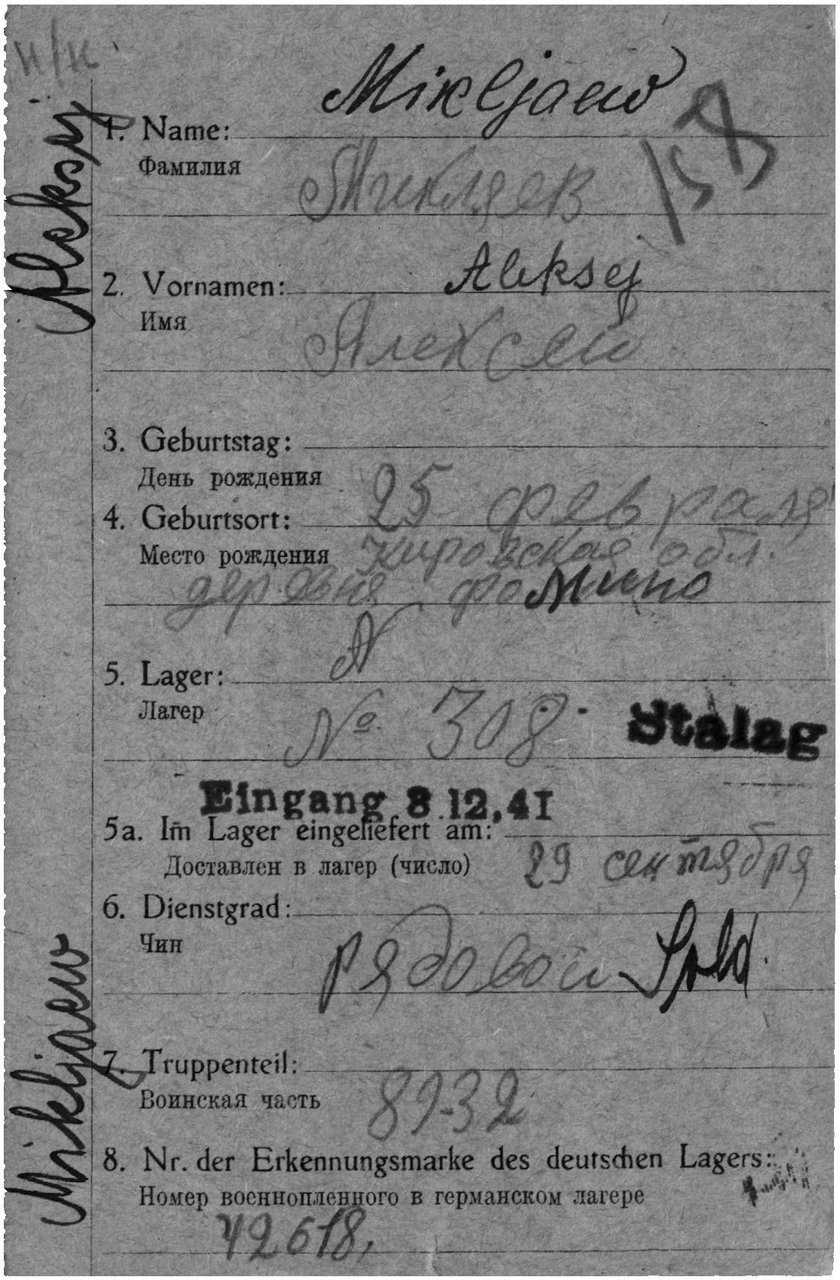 н/к.
Mikljaew
1. Name:
Фамилия
Микляев
158
Aleksej
2. Vornamen:
Aleksej
Имя
Алексей
3. Geburtstag:
День рождения
25 февраля
4. Geburtsort:
Место рождения Кировская обл.
деревня фомино
5. Lager: N
Лагер
№ 308. Stalag
Eingang 8.12.41
5a. Im Lager eingeliefert am:
Доставлен в лагер (число) 29 сентября
6. Dienstgrad:
Чин
рядовой Sold.
Mikljaew
7. Truppenteil:
Воинская часть
8. Nr. der Erkennungsmarke des deutschen Lagers:
Номер военнопленного в германском лагере
42618,